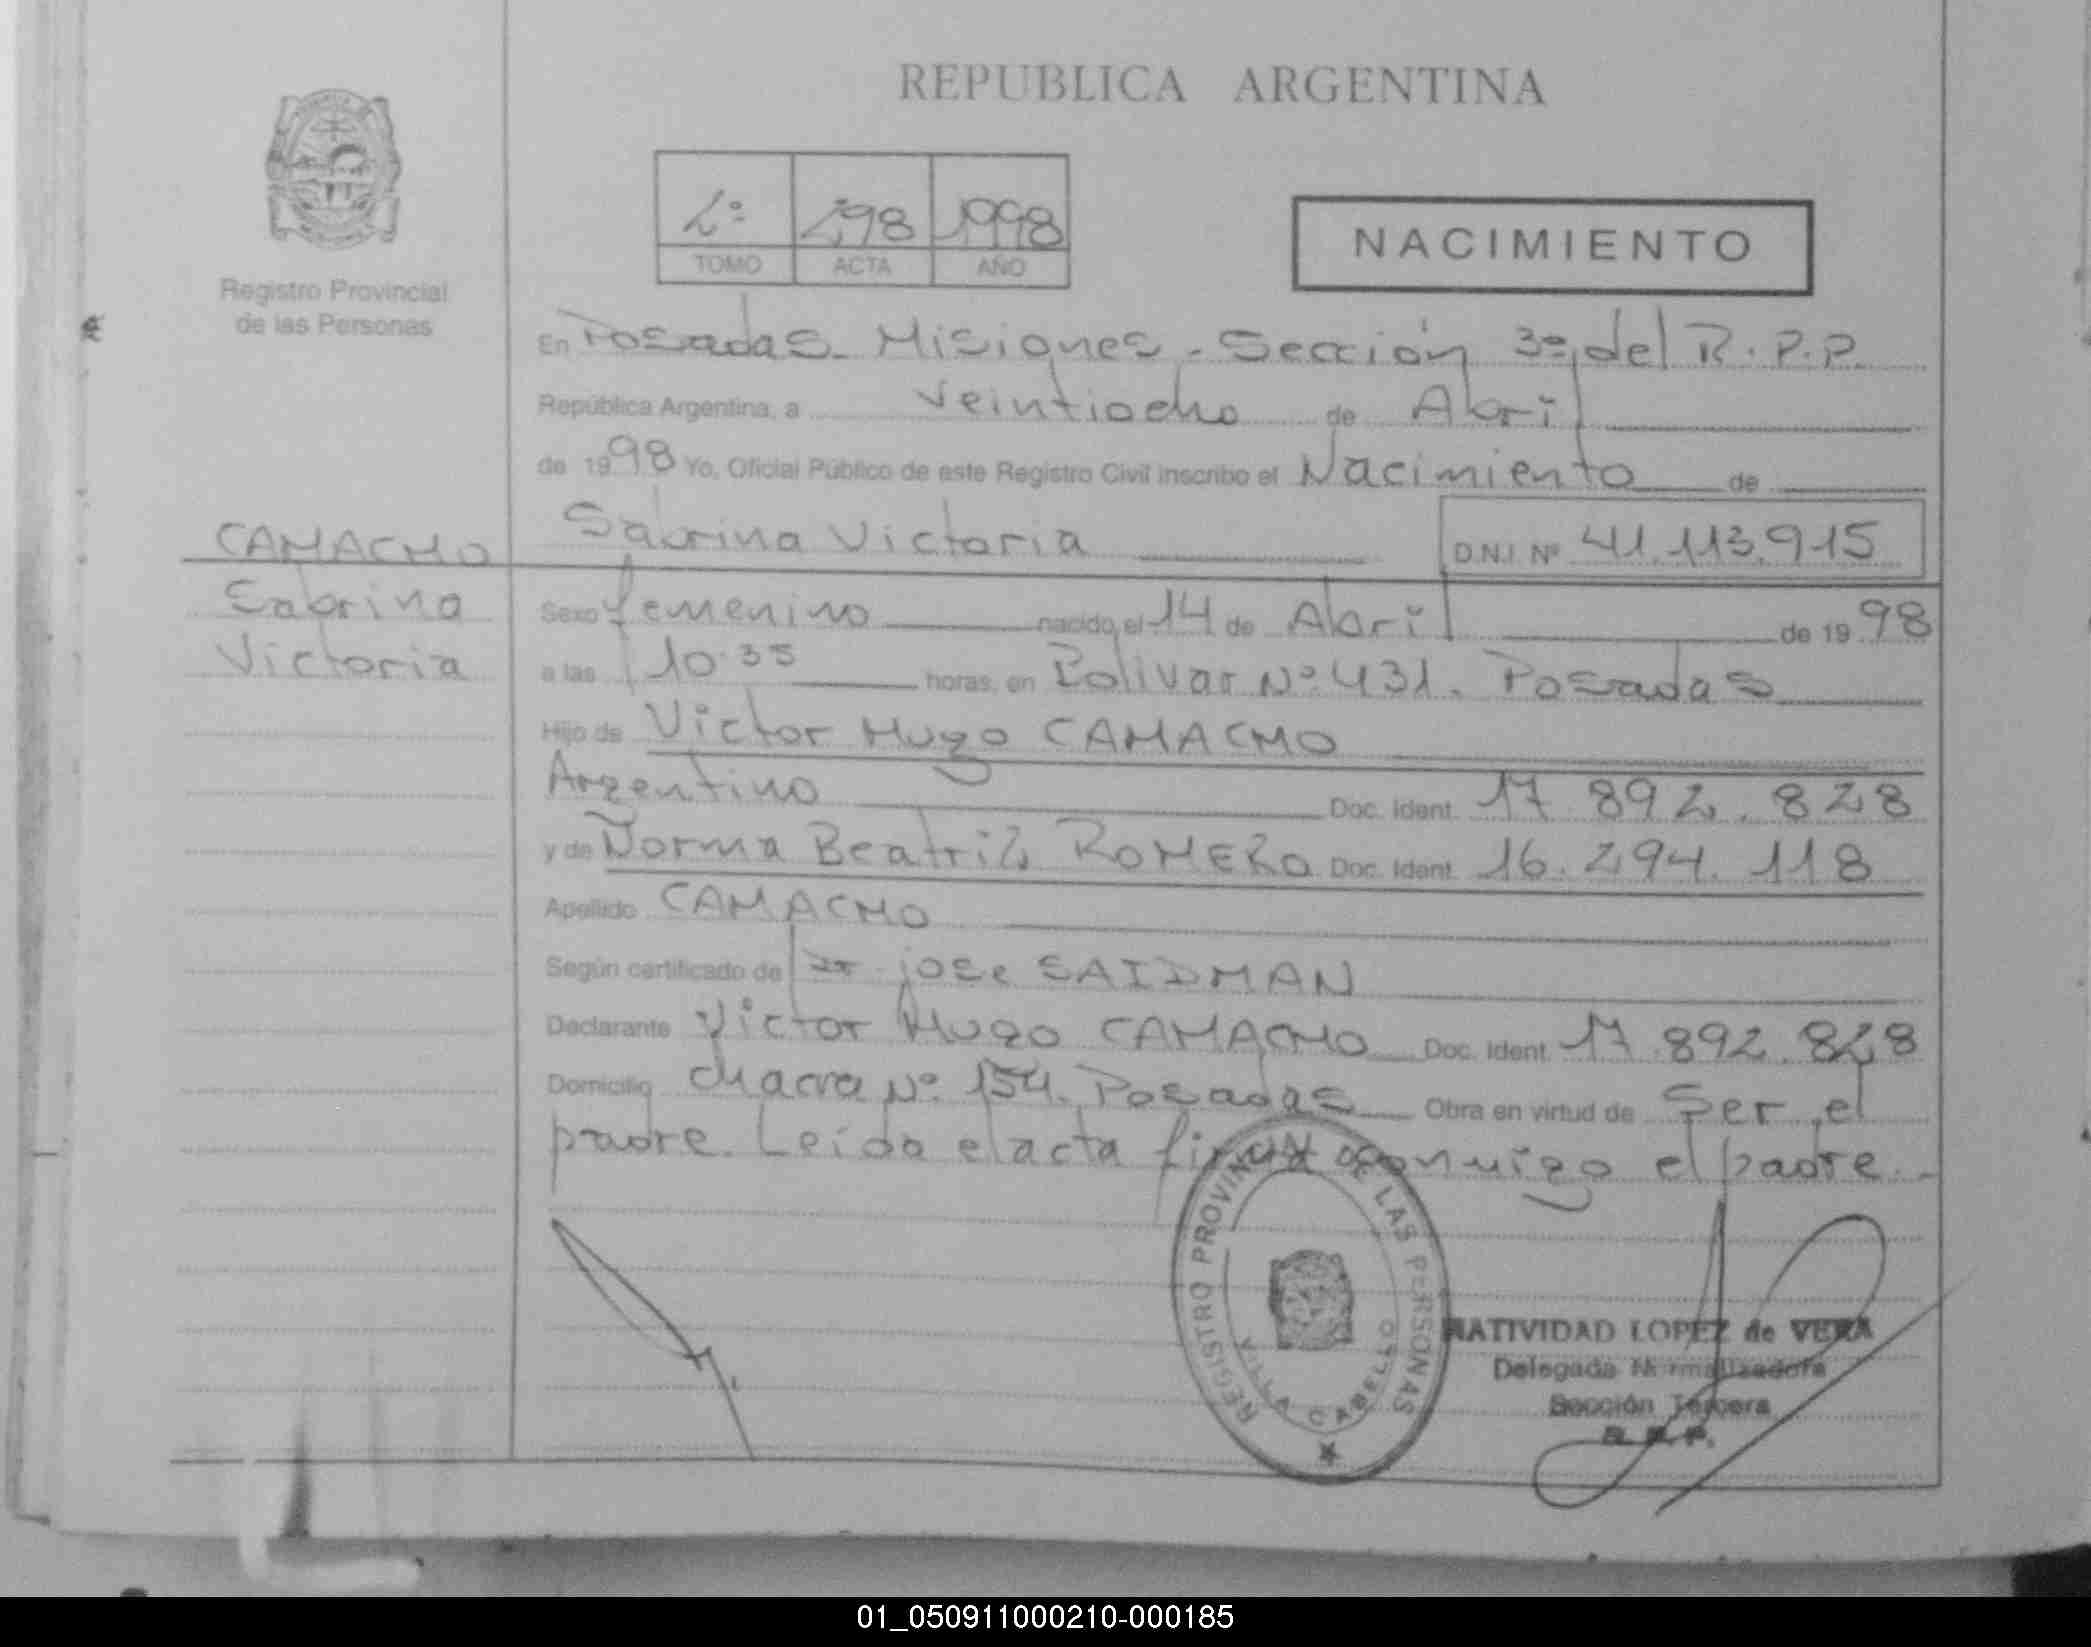 REPUBLICA ARGENTINA
Registro Provincial
de las Personas
2º 298 1998
TOMO ACTA AÑO
NACIMIENTO
En Posadas - Misiones - Sección 3º del R.P.P.
República Argentina, a veintiocho de Abril
de 1998 Yo, Oficial Público de este Registro Civil inscribo el Nacimiento de
CAMACHO
Sabrina
Victoria
Sabrina Victoria D.N.I. Nº 41.113.915
Sexo femenino nacido el 14 de Abril de 1998
a las 10.35 horas, en Bolivar Nº 431. Posadas
Hijo de Victor Hugo CAMACHO
Argentino Doc. Ident. 17.892.828
y de Norma Beatriz ROMERO Doc. Ident. 16.294.118
Apellido CAMACHO
Según certificado de Dr. jose SAIDMAN
Declarante Victor Hugo CAMACHO Doc. Ident. 17.892.828
Domicilio chacra Nº 154. Posadas Obra en virtud de Ser el
padre. Leida el acta firma conmigo el padre.-
REGISTRO PROVINCIAL DE LAS PERSONAS
VILLA CABELLO
NATIVIDAD LOPEZ de VERA
Delegada Normalizadora
Sección Tercera
R.P.P.
01_050911000210-000185